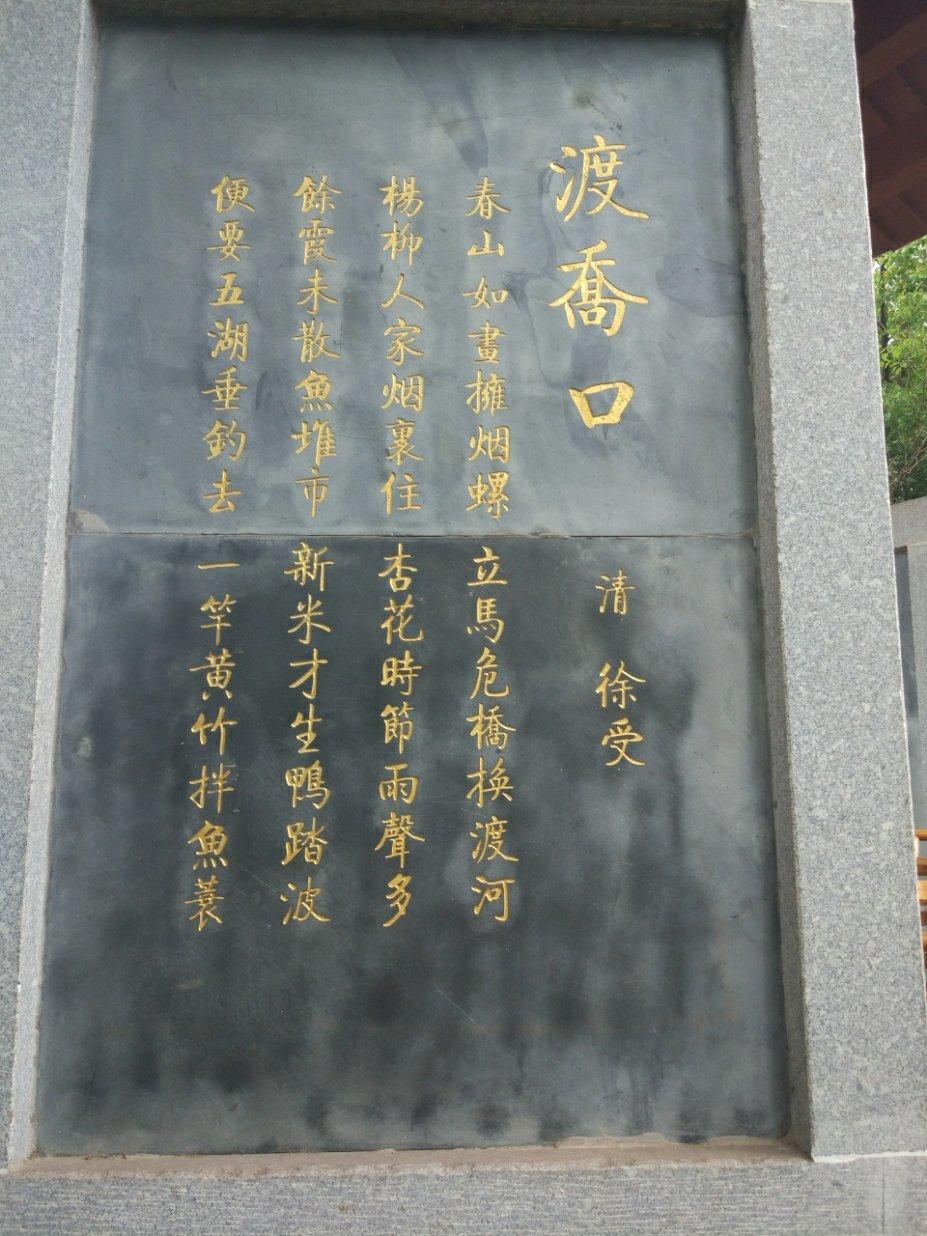 渡喬口
清 徐受
春山如畫擁烟螺 立馬危橋換渡河
楊柳人家烟裏住 杏花時節雨聲多
餘霞未散魚堆市 新米才生鴨踏波
便要五湖垂釣去 一竿黃竹拌魚蓑